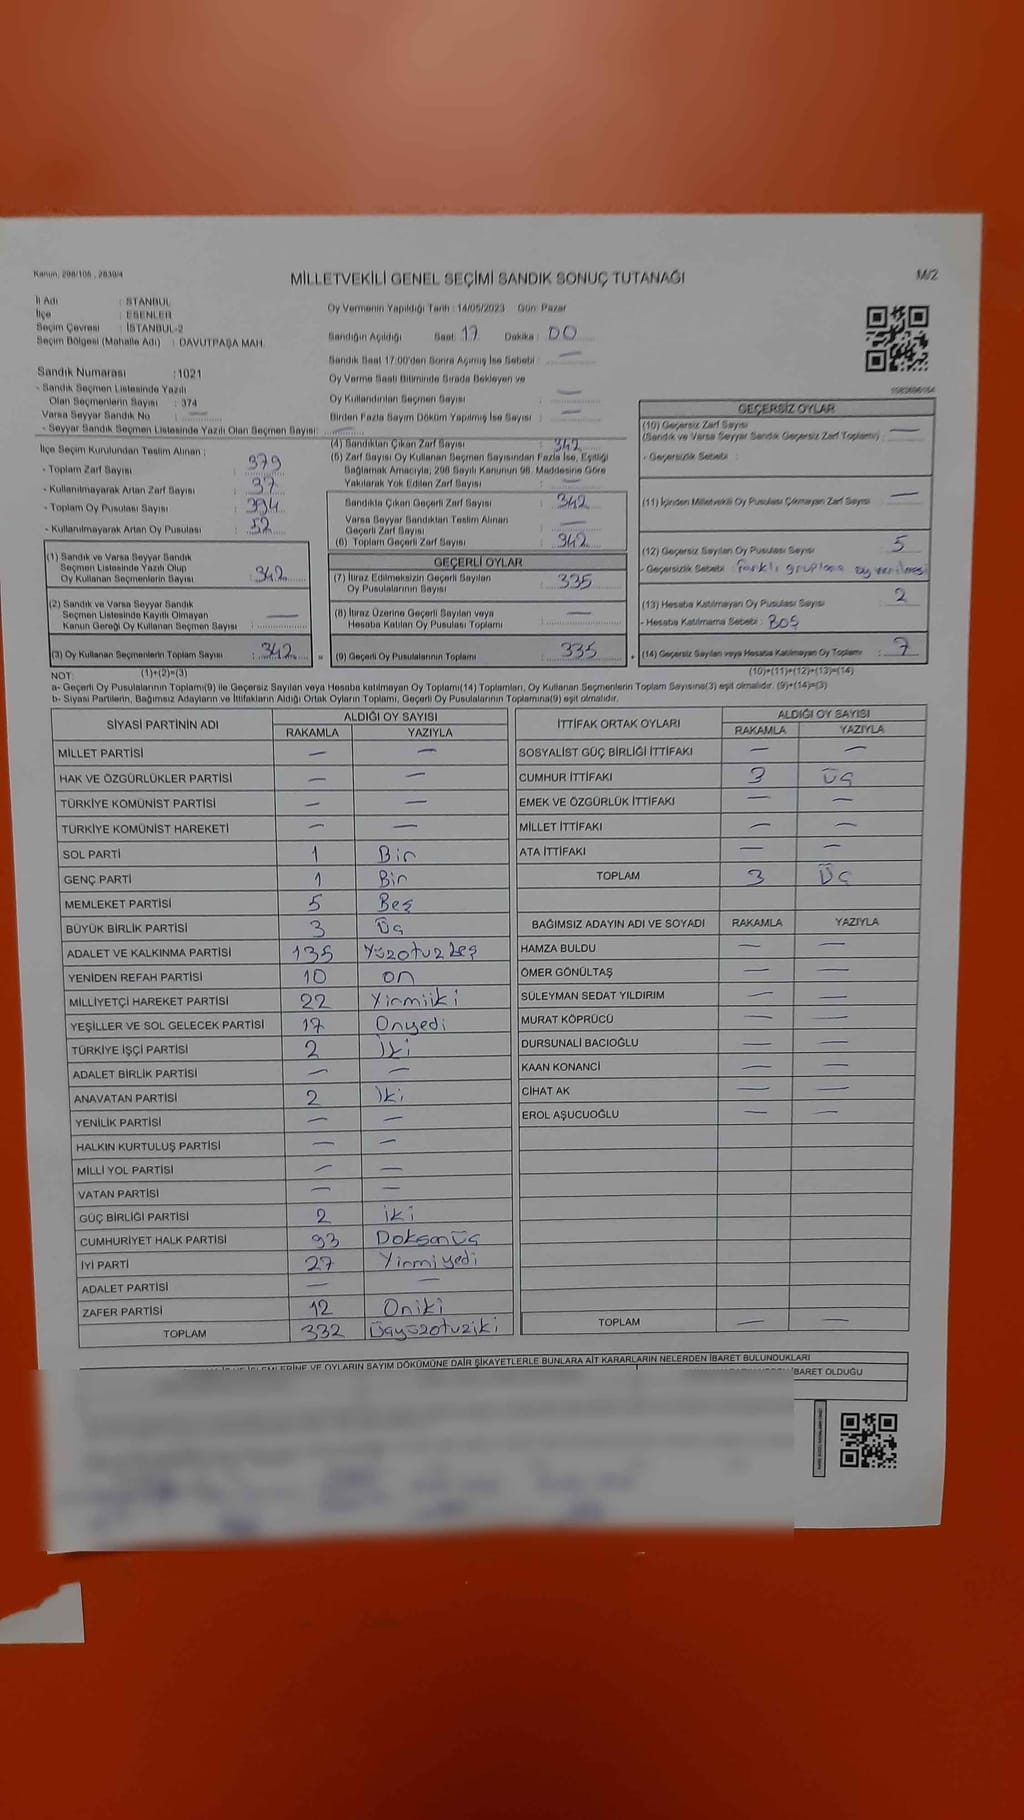 Kanun, 298/105 , 2839/4
MİLLETVEKİLİ GENEL SEÇİMİ SANDIK SONUÇ TUTANAĞI
M/2
İl Adı : STANBUL
İlçe : ESENLER
Seçim Çevresi : İSTANBUL-2
Seçim Bölgesi (Mahalle Adı) : DAVUTPAŞA MAH.
Oy Vermenin Yapıldığı Tarih : 14/05/2023 Gün: Pazar
Sandığın Açıldığı Saat: 17 Dakika : 00
Sandık Saat 17:00'den Sonra Açılmış İse Sebebi : —
Oy Verme Saati Bitiminde Sırada Bekleyen ve
Oy Kullandırılan Seçmen Sayısı : —
Birden Fazla Sayım Döküm Yapılmış İse Sayısı : —
Sandık Numarası :1021
- Sandık Seçmen Listesinde Yazılı
Olan Seçmenlerin Sayısı : 374
Varsa Seyyar Sandık No : —
- Seyyar Sandık Seçmen Listesinde Yazılı Olan Seçmen Sayısı: —
İlçe Seçim Kurulundan Teslim Alınan ;
- Toplam Zarf Sayısı : 379
- Kullanılmayarak Artan Zarf Sayısı : 37
- Toplam Oy Pusulası Sayısı : 394
- Kullanılmayarak Artan Oy Pusulası : 52
(1) Sandık ve Varsa Seyyar Sandık
Seçmen Listesinde Yazılı Olup
Oy Kullanan Seçmenlerin Sayısı : 342
(2) Sandık ve Varsa Seyyar Sandık
Seçmen Listesinde Kayıtlı Olmayan
Kanun Gereği Oy Kullanan Seçmen Sayısı : —
(3) Oy Kullanan Seçmenlerin Toplam Sayısı : 342 =
(4) Sandıktan Çıkan Zarf Sayısı : 342
(5) Zarf Sayısı Oy Kullanan Seçmen Sayısından Fazla İse, Eşitliği
Sağlamak Amacıyla; 298 Sayılı Kanunun 98. Maddesine Göre
Yakılarak Yok Edilen Zarf Sayısı : —
Sandıkta Çıkan Geçerli Zarf Sayısı : 342
Varsa Seyyar Sandıktan Teslim Alınan
Geçerli Zarf Sayısı : —
(6) Toplam Geçerli Zarf Sayısı : 342
GEÇERLİ OYLAR
(7) İtiraz Edilmeksizin Geçerli Sayılan
Oy Pusulalarının Sayısı : 335
(8) İtiraz Üzerine Geçerli Sayılan veya
Hesaba Katılan Oy Pusulası Toplamı : —
(9) Geçerli Oy Pusulalarının Toplamı : 335 +
GEÇERSİZ OYLAR
(10) Geçersiz Zarf Sayısı
(Sandık ve Varsa Seyyar Sandık Geçersiz Zarf Toplamı) : —
- Geçersizlik Sebebi :
(11) İçinden Milletvekili Oy Pusulası Çıkmayan Zarf Sayısı : —
(12) Geçersiz Sayılan Oy Pusulası Sayısı : 5
- Geçersizlik Sebebi : farklı gruplara oy verilmesi
(13) Hesaba Katılmayan Oy Pusulası Sayısı : 2
- Hesaba Katılmama Sebebi : BOŞ
(14) Geçersiz Sayılan veya Hesaba Katılmayan Oy Toplamı : 7
NOT: (1)+(2)=(3) (10)+(11)+(12)+(13)=(14)
a- Geçerli Oy Pusulalarının Toplamı(9) ile Geçersiz Sayılan veya Hesaba katılmayan Oy Toplamı(14) Toplamları, Oy Kullanan Seçmenlerin Toplam Sayısına(3) eşit olmalıdır. (9)+(14)=(3)
b- Siyasi Partilerin, Bağımsız Adayların ve İttifakların Aldığı Ortak Oyların Toplamı, Geçerli Oy Pusulalarının Toplamına(9) eşit olmalıdır.
SİYASİ PARTİNİN ADI ALDIĞI OY SAYISI
RAKAMLA YAZIYLA
MİLLET PARTİSİ — —
HAK VE ÖZGÜRLÜKLER PARTİSİ — —
TÜRKİYE KOMÜNİST PARTİSİ — —
TÜRKİYE KOMÜNİST HAREKETİ — —
SOL PARTİ 1 Bir
GENÇ PARTİ 1 Bir
MEMLEKET PARTİSİ 5 Beş
BÜYÜK BİRLİK PARTİSİ 3 Üç
ADALET VE KALKINMA PARTİSİ 135 Yüzotuzbeş
YENİDEN REFAH PARTİSİ 10 on
MİLLİYETÇİ HAREKET PARTİSİ 22 Yirmiiki
YEŞİLLER VE SOL GELECEK PARTİSİ 17 Onyedi
TÜRKİYE İŞÇİ PARTİSİ 2 İki
ADALET BİRLİK PARTİSİ — —
ANAVATAN PARTİSİ 2 İki
YENİLİK PARTİSİ — —
HALKIN KURTULUŞ PARTİSİ — —
MİLLİ YOL PARTİSİ — —
VATAN PARTİSİ — —
GÜÇ BİRLİĞİ PARTİSİ 2 iki
CUMHURİYET HALK PARTİSİ 93 Doksanüç
İYİ PARTİ 27 Yirmiyedi
ADALET PARTİSİ — —
ZAFER PARTİSİ 12 Oniki
TOPLAM 332 Üçyüzotuziki
İTTİFAK ORTAK OYLARI ALDIĞI OY SAYISI
RAKAMLA YAZIYLA
SOSYALİST GÜÇ BİRLİĞİ İTTİFAKI — —
CUMHUR İTTİFAKI 3 Üç
EMEK VE ÖZGÜRLÜK İTTİFAKI — —
MİLLET İTTİFAKI — —
ATA İTTİFAKI — —
TOPLAM 3 Üç
BAĞIMSIZ ADAYIN ADI VE SOYADI RAKAMLA YAZIYLA
HAMZA BULDU — —
ÖMER GÖNÜLTAŞ — —
SÜLEYMAN SEDAT YILDIRIM — —
MURAT KÖPRÜCÜ — —
DURSUNALİ BACIOĞLU — —
KAAN KONANCİ — —
CİHAT AK — —
EROL AŞUCUOĞLU — —
TOPLAM — —
VE OYLARIN SAYIM DÖKÜMÜNE DAİR ŞİKAYETLERLE BUNLARA AİT KARARLARIN NELERDEN İBARET BULUNDUKLARI
İBARET OLDUĞU